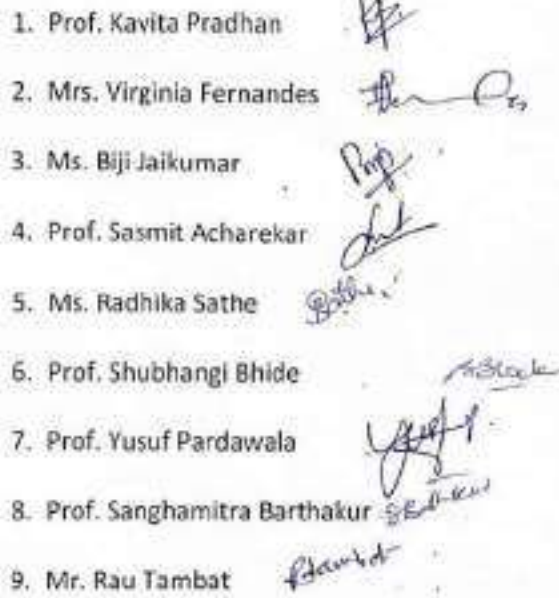 1. Prof. Kavita Pradhan
2. Mrs. Virginia Fernandes
3. Ms. Biji Jaikumar
4. Prof. Sasmit Acharekar
5. Ms. Radhika Sathe
6. Prof. Shubhangi Bhide
7. Prof. Yusuf Pardawala
8. Prof. Sanghamitra Barthakur
9. Mr. Rau Tambat